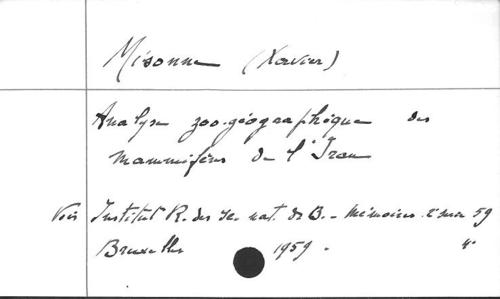 Misonne (Xavier)
Analyse zoo-géographique des
mammifères de l'Iran
Voir Institut R. des Sc. nat. de B. - Mémoires. 2e série 59
Bruxelles 1959. 4°